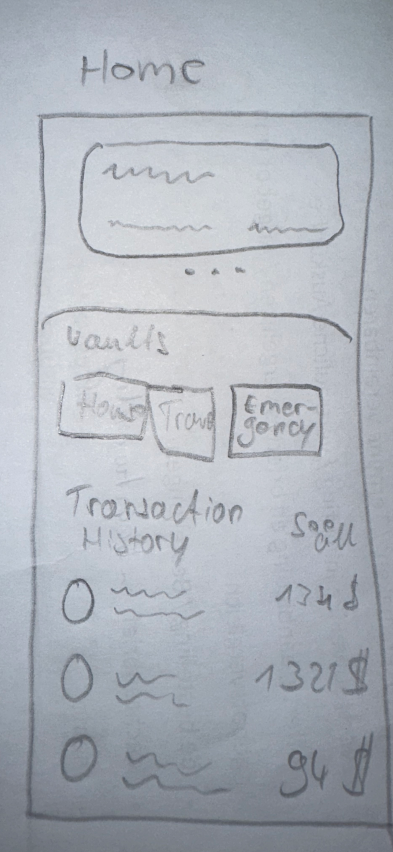 Home
Vaults
House Travel Emer-
gency
Transaction
History See all
134 $
1321 $
94 $